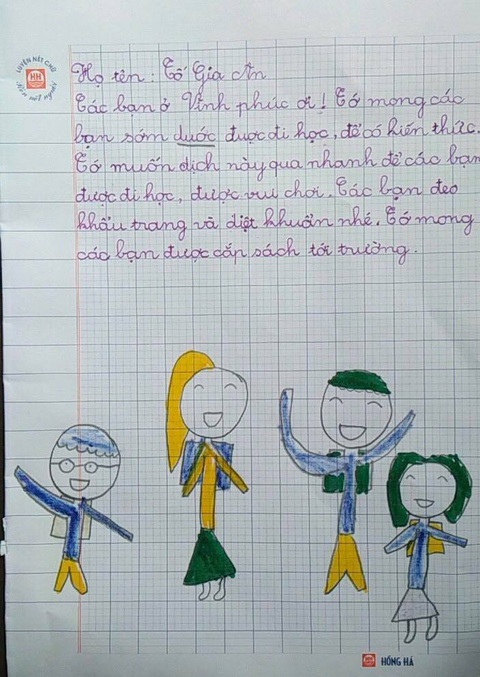 LUYỆN NÉT CHỮ
HH
Rèn nết người
Họ tên : Tố Gia An
Các bạn ở Vĩnh phúc ơi! Tớ mong các
bạn sớm dước được đi học, để có kiến thức.
Tớ muốn dịch này qua nhanh để các bạn
được đi học, được vui chơi. Các bạn đeo
khẩu trang và diệt khuẩn nhé. Tớ mong
các bạn được cắp sách tới trường.
HỒNG HÀ